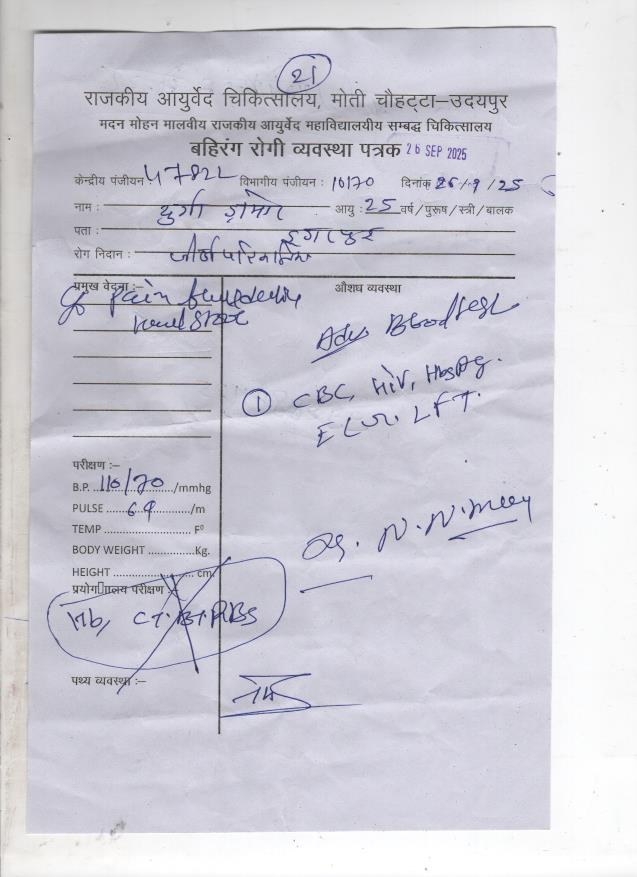 21
राजकीय आयुर्वेद चिकित्सालय, मोती चौहट्टा–उदयपुर
मदन मोहन मालवीय राजकीय आयुर्वेद महाविद्यालयीय सम्बद्ध चिकित्सालय
बहिरंग रोगी व्यवस्था पत्रक 26 SEP 2025
केन्द्रीय पंजीयन : 47822 विभागीय पंजीयन : 10170 दिनांक 26/9/25
नाम : दुर्गा डामोर आयु : 25 वर्ष/पुरूष/स्त्री/बालक
पता : डूंगरपुर
रोग निदान :
प्रमुख वेदना :–
औशघ व्यवस्था
Pain
Adv Blood test
① CBC, HIV, HbsAg.
LFT.
परीक्षण :–
B.P. 110/70 /mmhg
PULSE /m
TEMP F⁰
BODY WEIGHT Kg.
HEIGHT cm.
प्रयोगालय परीक्षण :–
Hb, CT. BT. RBS
Dr. N. N.
पथ्य व्यवस्था :–